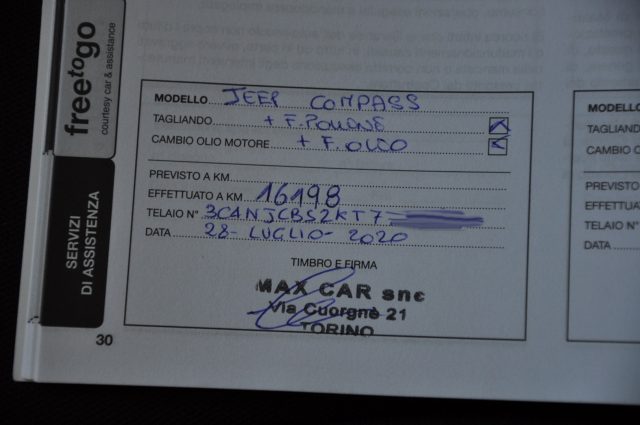 freetogo
courtesy car & assistance
SERVIZI
DI ASSISTENZA
MODELLO JEEP COMPASS
TAGLIANDO + F. POLLINE
CAMBIO OLIO MOTORE + F. OLIO
PREVISTO A KM
EFFETTUATO A KM 16198
TELAIO N° 3C4NJCBS2KT7
DATA 28- LUGLIO- 2020
TIMBRO E FIRMA
MAX CAR snc
Via Cuorgnè 21
TORINO
30
MODELLO
TAGLIAND
CAMBIO OL
PREVISTO
EFFETTUA
TELAIO N°
DATA